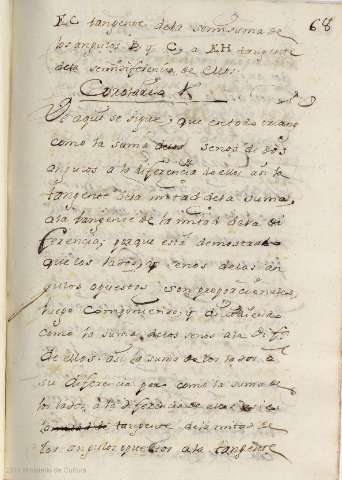 68
EC tangente dela semisuma de
los angulos B y C, a EH tangente
dela semidiferencia de ellos.
Corolario
De aqui se sigue, que en todo triang.
como la suma delos senos de dos
angulos a la diferencia de ellos asi la
tangente dela mitad dela suma,
ala tangente de la mitad dela di
ferencia; porque está demostrado
que los lados, y senos delos an
gulos opuestos son proporcionales,
luego componiendo, y dividiendo
como la suma delos senos ala dif.
de ellos: asi la suma de los lados a
su diferencia pero como la suma de
los lados, à la diferencia de ellos
la mitad di tangente dela mitad de
los angulos opuestos a la tangente
2011 Ministerio de Cultura